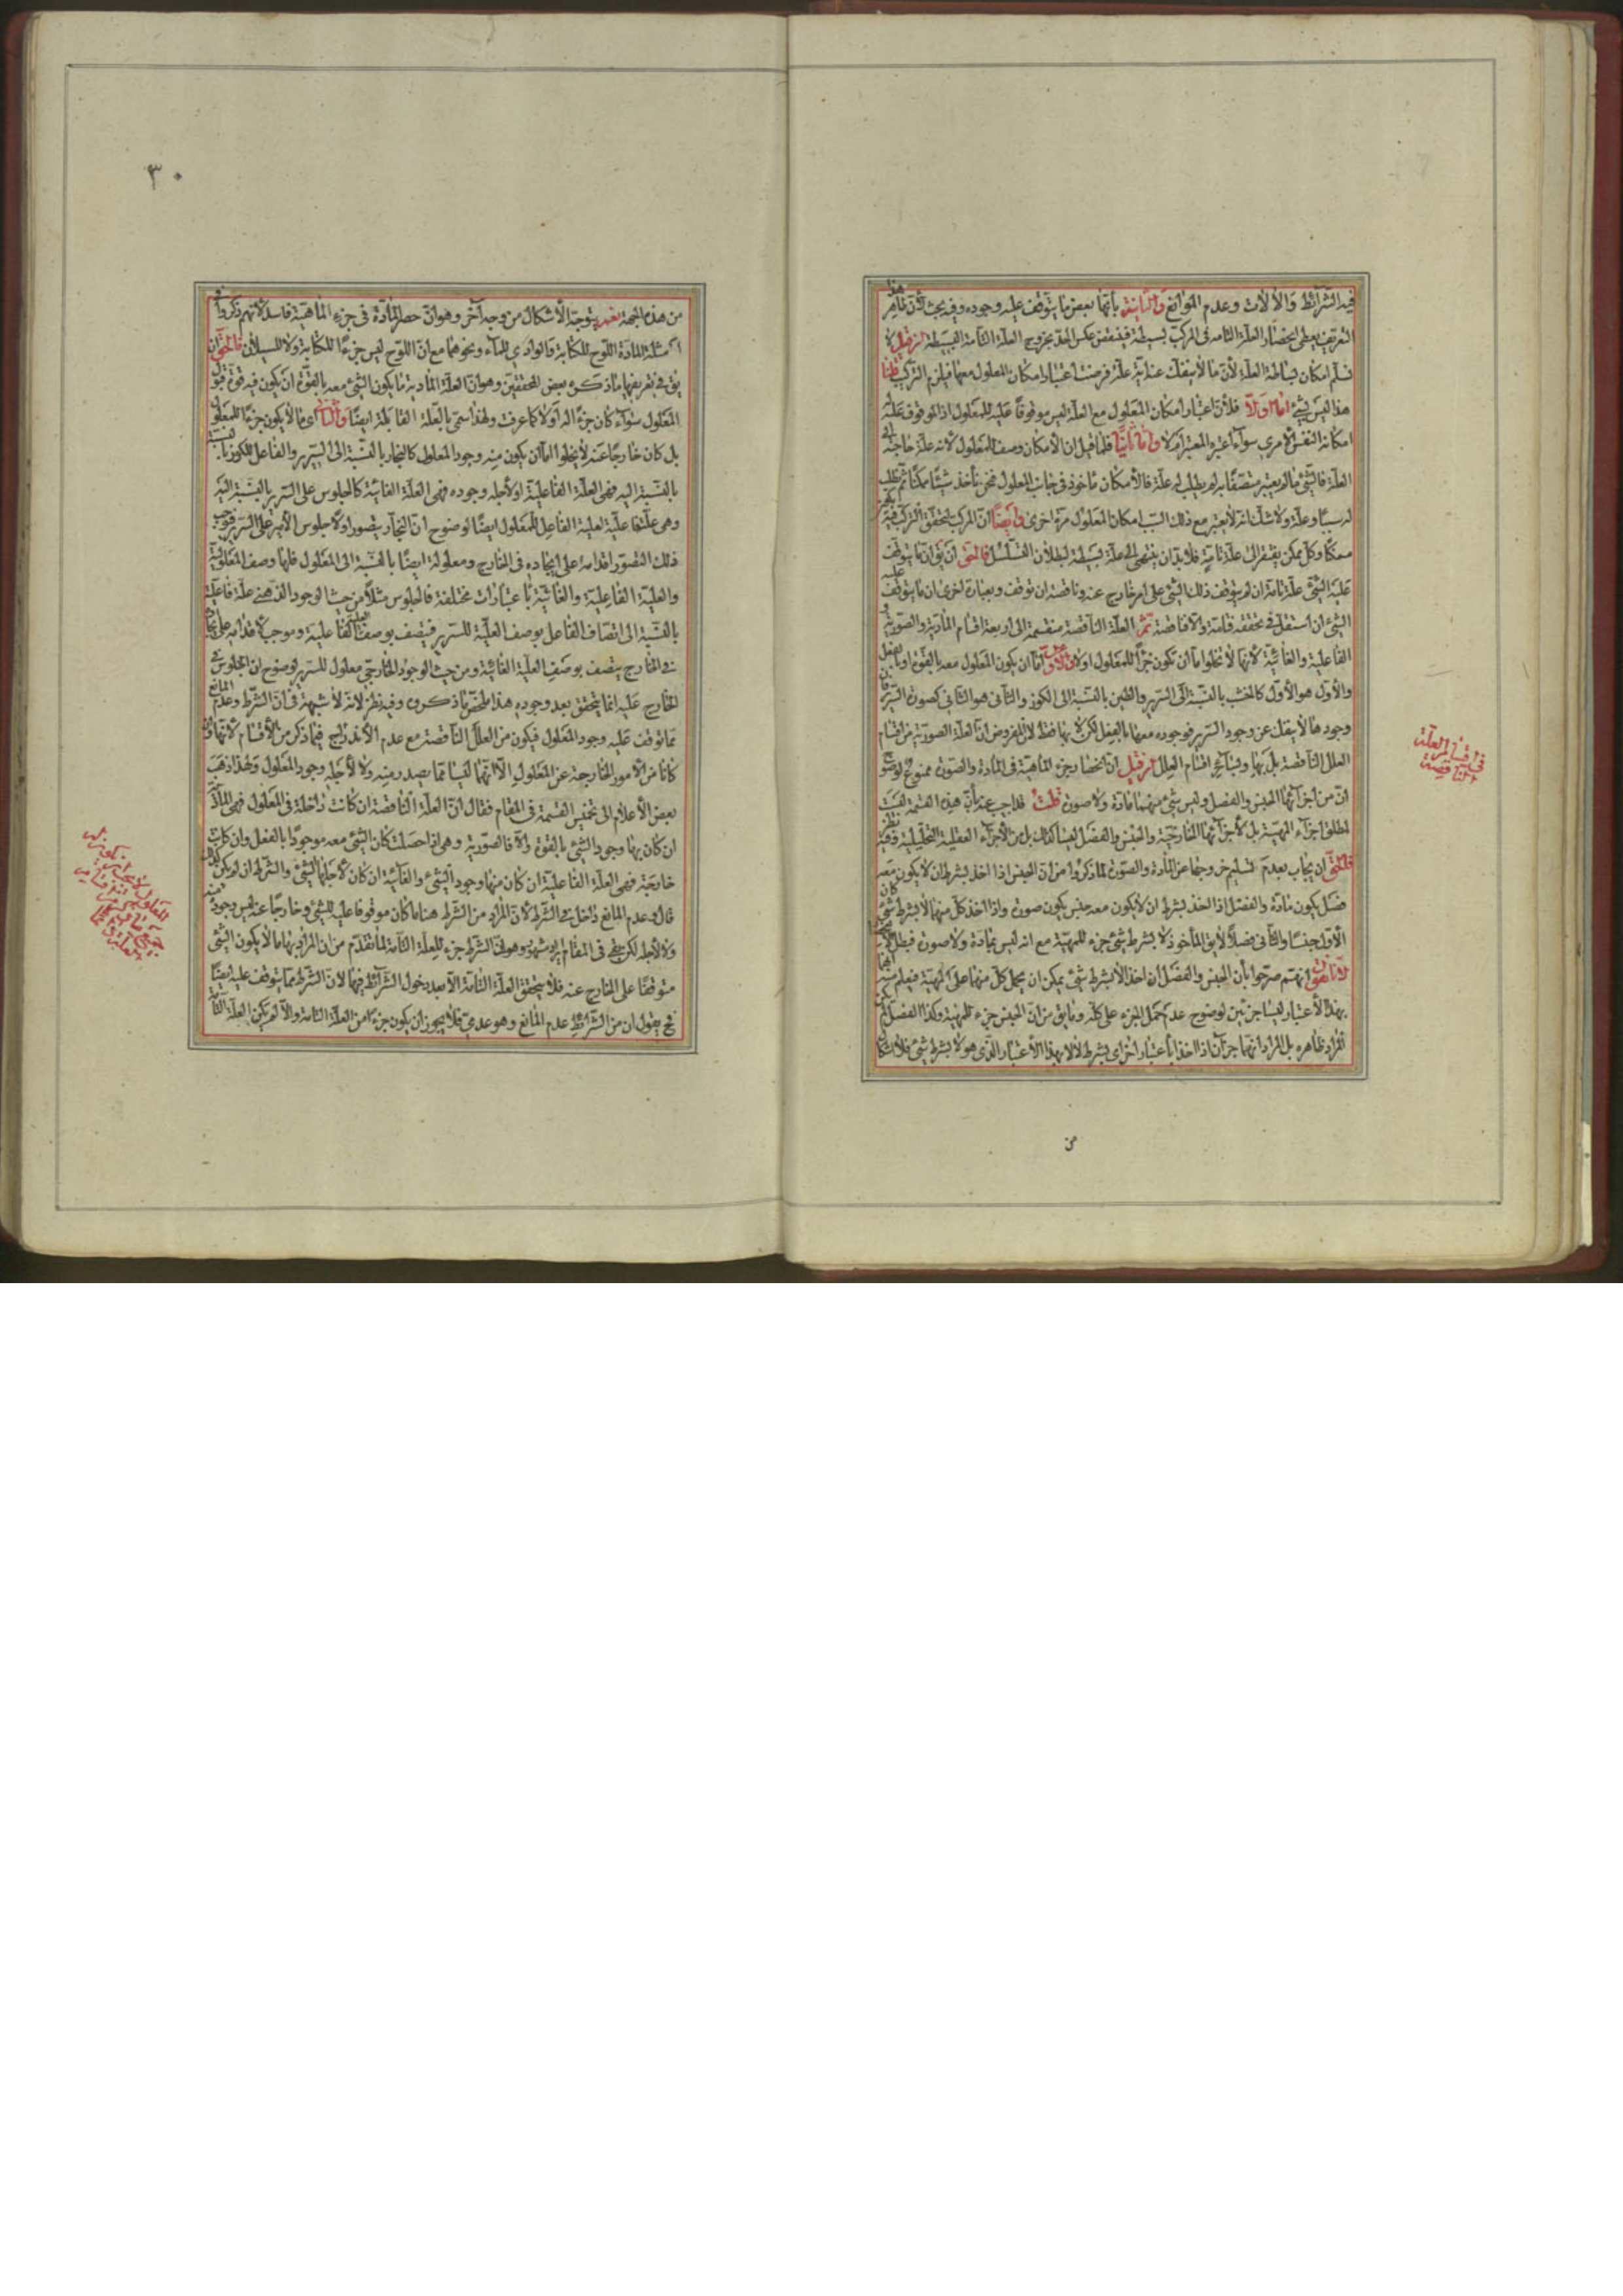 فيه الشرائط والآلات وعدم الموانع والثانية بأنها بعض ما يتوقف عليه وجوده وفيه بحث لأن ظاهر هذا
التعريف يعطى انحصار العلة التامة فى المركب لبسيطة فينتقض عكس الحد بخروج العلة التامة البسيطة لا
نسلم امكان بساطة العلة لأن ما لا ينفك عنه اية علة فرضت اعتبار امكان المعلول معها فيلزم التركيب قلنا
هذا ليس بشئ اما اولا فلأن اعتبار امكان المعلول مع العلة ليس موقوفا عليه للمعلول اذ الموقوف عليه
امكانه النفس الأمرى سواء اعتبره المعتبر ام لا واما ثانيا فلما قيل ان الامكان وصف للمعلول لأنه علة حاجته الى
العلة فالشئ ما لم يعتبر متصفا به لم يطلب له علة فالامكان ماخوذ فى جانب المعلول فنحن نأخذ شيئا ممكنا ثم نطلب
له سببا وعلة ولا شك انه لا يعتبر مع ذلك السبب امكان المعلول مرة اخرى وايضا ان المركب لتحقق التركيب فيه
ممكن وكل ممكن يفتقر الى علة تامة فلا بد ان ينتهى الى علة بسيطة لبطلان التسلسل فالحق ان يق ان ما يتوقف
عليه الشئ علة تامة ان لم يتوقف ذلك الشئ على امر خارج عنه وناقصة ان توقف وبعبارة اخرى ان ما يتوقف عليه
الشئ ان استقل فى تحققه فتامة والا فناقصة ثم العلة الناقصة منقسمة الى اربعة اقسام المادية والصورية و
الفاعلية والغائية لأنها لا يخلوا اما ان تكون جزءا للمعلول اولا وعلى الاول اما ان يكون المعلول معه بالقوة او بالفعل
والأول هو الأول كالخشب بالنسبة الى السرير والطين بالنسبة الى الكوز والثانى هو الثانى كصورة السرير فان
وجودها لا ينفك عن وجود السرير فوجوده معها بالفعل لكن لا بها فقط لأن المفروض ان العلة الصورية من اقسام
العلل الناقصة بل بها وبسائر اقسام العلل فان قيل ان انحصار جزء الماهية فى المادة والصورة ممنوع لوضوح
ان من اجزائها الجنس والفصل وليس شئ منهما مادة ولا صورة قلت قد اجيب عنه بأن هذه القسمة ليست
لمطلق اجزاء المهية بل لأجزائها الخارجية والجنس والفصل ليسا كذلك بل من الأجزاء العقلية التحليلية وفيه نظر
فالحق ان يجاب بعدم تسليم خروجهما عن المادة والصورة لما ذكروا من ان الجنس اذا اخذ بشرط ان لا يكون معه
فصل يكون مادة والفصل اذا اخذ بشرط ان لا يكون معه جنس يكون صورة واذا اخذ كل منهما لا بشرط شئ كان
الأول جنسا والثانى فصلا لا يق المأخوذ لا بشرط شئ جزء للمهية مع انه ليس بمادة ولا صورة فبطل الانحصار
لأنا نقول انهم صرحوا بأن الجنس والفصل ان اخذ لا بشرط شئ يمكن ان يحمل كل منهما على المهية فيعلم منه انهما
بهذا الأعتبار ليسا جزئين لوضوح عدم حمل الجزء على كله وما يق من ان الجنس جزء للمهية وكذا الفصل
المراد ظاهره بل المراد انهما جزآن اذا اخذا بأعتبار اخر اى بشرط لا لا بهذا الأعتبار الذى هو لا بشرط شئ فلا اشكال
من
فى اقسام العلة
الناقصة
٣٠
من هذه الجهة نعم يتوجه الأشكال من وجه آخر وهو ان حصر المادة فى جزء الماهية فاسد لأنهم ذكروا فى
امثلة المادة اللوح للكتابة والوادى للماء ونحوهما مع ان اللوح ليس جزءا للكتابة ولا للسيلان فالحق ان
يق فى تعريفها ما ذكره بعض المحققين وهو ان العلة المادية ما يكون الشئ معه بالقوة ان يكون فيه قوة قبول
المعلول سواء كان جزءا له اولا كما عرفت ولهذا سمى بالعلة القابلة ايضا والثانى اى ما لا يكون جزءا للمعلول
بل كان خارجا عنه لا يخلوا اما ان يكون منه وجود المعلول كالنجار بالنسبة الى السرير والفاعل للكوز بالنسبة
بالنسبة اليه فهى العلة الفاعلية او لأجله وجوده فهى العلة الغائية كالجلوس على السرير بالنسبة اليه
وهى علة فاعلية لعلية الفاعل للمعلول ايضا لوضوح ان النجار يتصور اولا جلوس الأمير على السرير فيوجب
ذلك التصور اقدامه على ايجاده فى الخارج ومعلولة ايضا بالنسبة الى المعلول فلها وصف المعلولية
والعلية الفاعلية والغائية بأعتبارات مختلفة فالجلوس مثلا من حيث الوجود الذهنى علة فاعلية
بالنسبة الى اتصاف الفاعل بوصف العلية للسرير فيتصف بوصف العلية الفاعلية وموجب لأقدامه على ايجاده
فى الخارج يتصف بوصف العلية الغائية ومن حيث الوجود الخارجى معلول للسرير لوضوح ان الجلوس فى
الخارج عليه انما يتحقق بعد وجوده هذا ملخص ما ذكروه وفيه نظر لأنه لا شبهة فى ان الشرط وعدم المانع
مما توقف عليه وجود المعلول فيكون من العلل الناقصة مع عدم الأندراج فيما ذكر من الأقسام لأنهما وان
كانا من الأمور الخارجة عن المعلول الا انهما ليسا مما يصدر منه ولا لأجله وجود المعلول ولهذا ذهب
بعض الأعلام الى تخميس القسمة فى المقام فقال ان العلة الناقصة ان كانت داخلة فى المعلول فهى المادة
ان كان بها وجود الشئ بالقوة والا فالصورية وهى اذا حصلت كان الشئ معه موجودا بالفعل وان كانت
خارجة فهى العلة الفاعلية ان كان منها وجود الشئ والغائية ان كان لأجلها الشئ والشرط ان لم يكن كذلك
قال وعدم المانع داخل فى الشرط لأن المراد من الشرط هنا ما كان موقوفا عليه للشئ وخارجا عنه ليس وجوده منه
ولا لأجله لكن بقى فى المقام ايراد مشهور وهو ان الشرط جزء للعلة التامة لما تقدم من ان المراد بها ما لا يكون الشئ
متوقفا على الخارج عنه فلا يتحقق العلة التامة الا بعد دخول الشرائط فيها لأن الشرط مما يتوقف عليه ايضا
فح يقول ان من الشرائط عدم المانع وهو عدمى فلا يجوز ان يكون جزءا من العلة التامة والا لم يكن العلة التامة